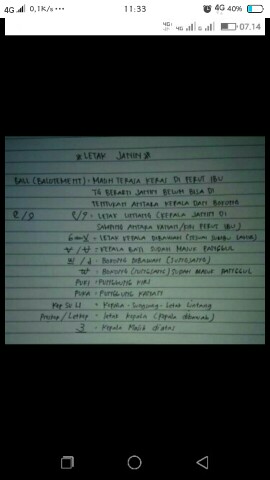 4G 0,1K/s 11:33 4G 40%
4G 4G 07.14
* LETAK JANIN *
BALL (BALLOTEMENT) = MASIH TERASA KERAS DI PERUT IBU
TP BERARTI JANIN BELUM BISA DI
TENTUKAN ANTARA KEPALA DAN BOKONG
= LETAK LINTANG (KEPALA JANIN DI
SAMPING ANTARA KANAN/KIRI PERUT IBU)
= LETAK KEPALA DIBAWAH (BELUM
= KEPALA BAYI SUDAH MASUK PANGGUL
= BOKONG DIBAWAH (SUNGSANG)
= BOKONG (SUNGSANG) SUDAH MASUK PANGGUL
PUKI = PUNGGUNG KIRI
PUKA = PUNGGUNG KANAN
Kep Su Li = Kepala - Sungsang - Letak Lintang
/ Letkep = letak kepala (kepala dibawah)
= Kepala Masih diatas